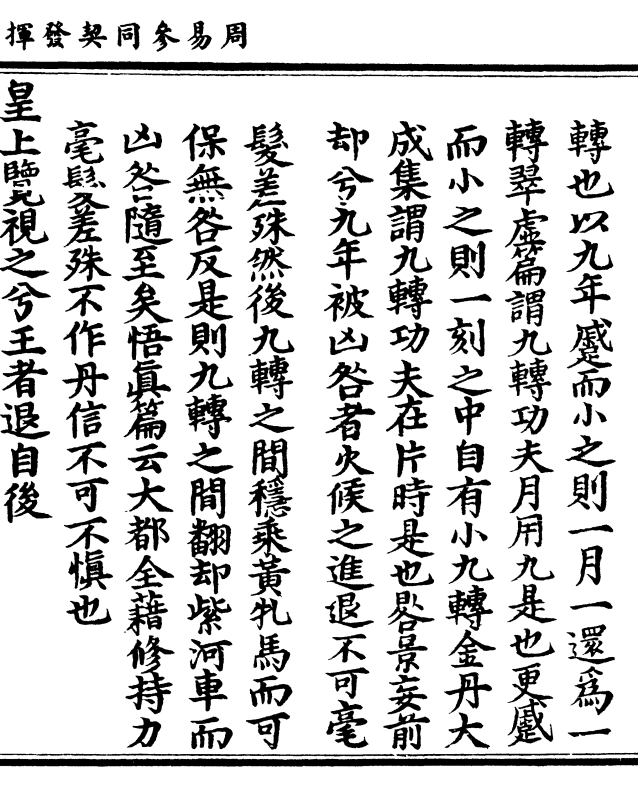 周易參同契發揮
轉也以九年蹙而小之則一月一還爲一
轉翠虛篇謂九轉功夫月用九是也更蹙
而小之則一刻之中自有小九轉金丹大
成集謂九轉功夫在片時是也晷景妄前
却兮九年被凶咎者火候之進退不可毫
髮差殊然後九轉之間穩乘黃牝馬而可
保無咎反是則九轉之間翻却紫河車而
凶咎隨至矣悟眞篇云大都全藉修持力
毫髮差殊不作丹信不可不愼也
皇上覽視之兮王者退自後